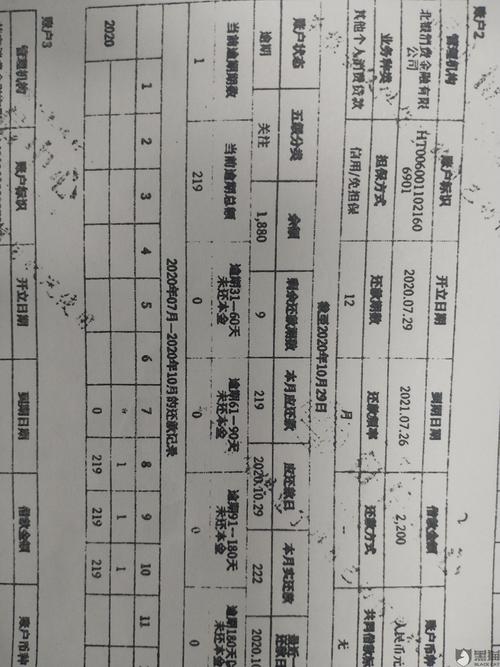 账户2
管理机构 账户标识 开立日期 到期日期 借款金额 账户币种
北银消费金融有限公司 HT006001102160 6901 2020.07.29 2021.07.26 2,200 人民币元
业务种类 担保方式 还款期数 还款频率 还款方式 共同借款标
其他个人消费贷款 信用/免担保 12 月 -- 无
截至2020年10月29日
账户状态 五级分类 余额 剩余还款期数 本月应还款 应还款日 本月实还款 最近
逾期 关注 1,880 9 219 2020.10.29 222 2020.10
当前逾期期数 当前逾期总额 逾期31—60天未还本金 逾期61—90天未还本金 逾期91—180天未还本金 逾期180天
1 219 0 0 0
2020年07月—2020年10月的还款记录
1 2 3 4 5 6 7 8 9 10 11
2020 * 1 1 1
0 219 219 219
账户3
管理机构 账户标识 开立日期 到期日期 借款金额 账户币种
黑猫